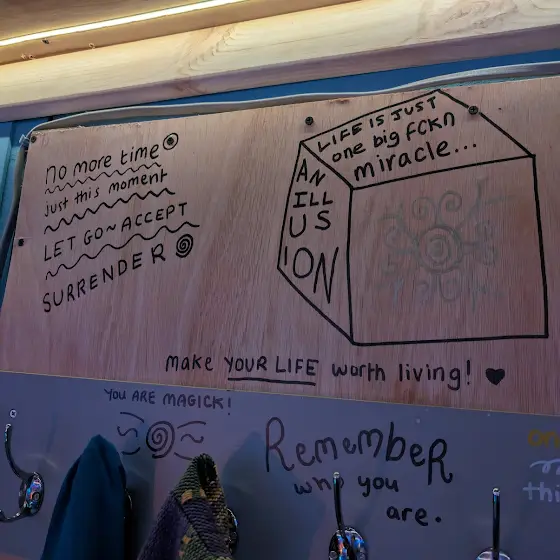 no more time
just this moment
LET GO~ACCEPT
SURRENDER
LIFE IS JUST
one big fckn
miracle...
AN
ILL
US
'ION
make YOUR LIFE worth living! ♥
YOU ARE MAGICK!
RemembeR
who you
are.
thi